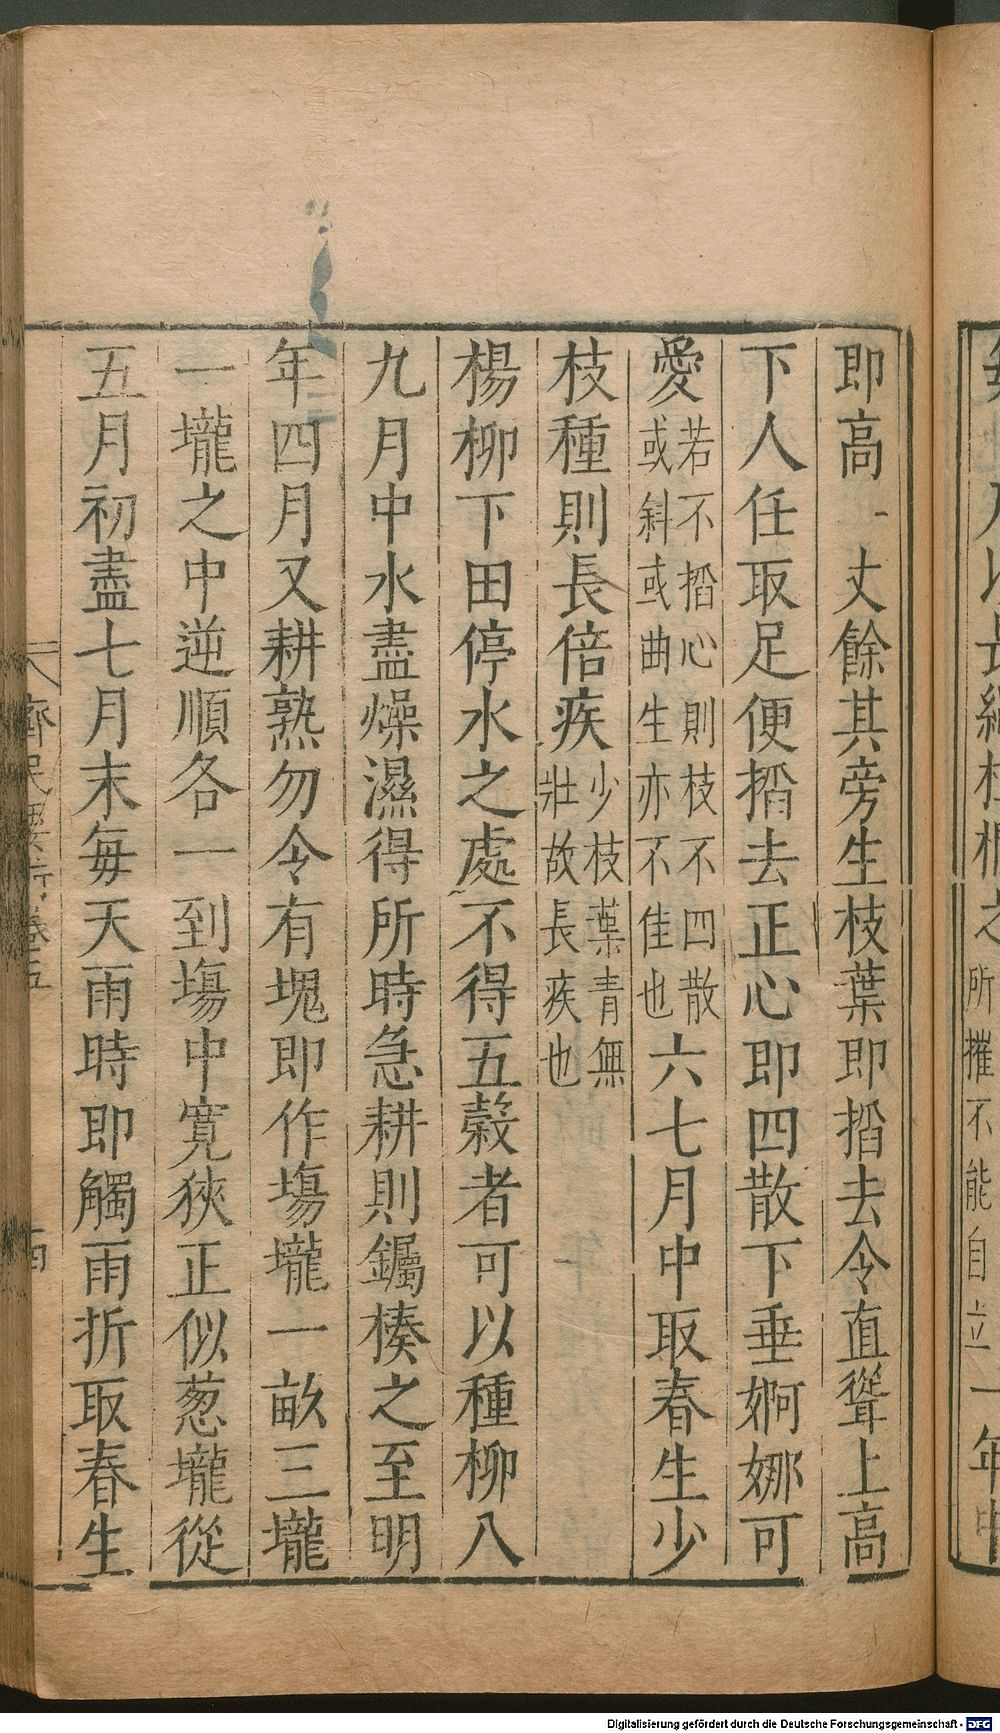 即高一丈餘其旁生枝葉即搯去令直聳上高
下人任取足便搯去正心即四散下垂婀娜可
愛若不搯心則枝不四散或斜或曲生亦不佳也六七月中取春生少
枝種則長倍疾少枝葉青無壯故長疾也
楊柳下田停水之處不得五穀者可以種柳八
九月中水盡燥濕得所時急耕則钃楱之至明
年四月又耕熟勿令有塊即作塲壠一畝三壠
一壠之中逆順各一到塲中寛狹正似葱壠從
五月初盡七月末每天雨時即觸雨折取春生
齊民要術卷五
所摧不能自立一年中
Digitalisierung gefördert durch die Deutsche Forschungsgemeinschaft - DFG